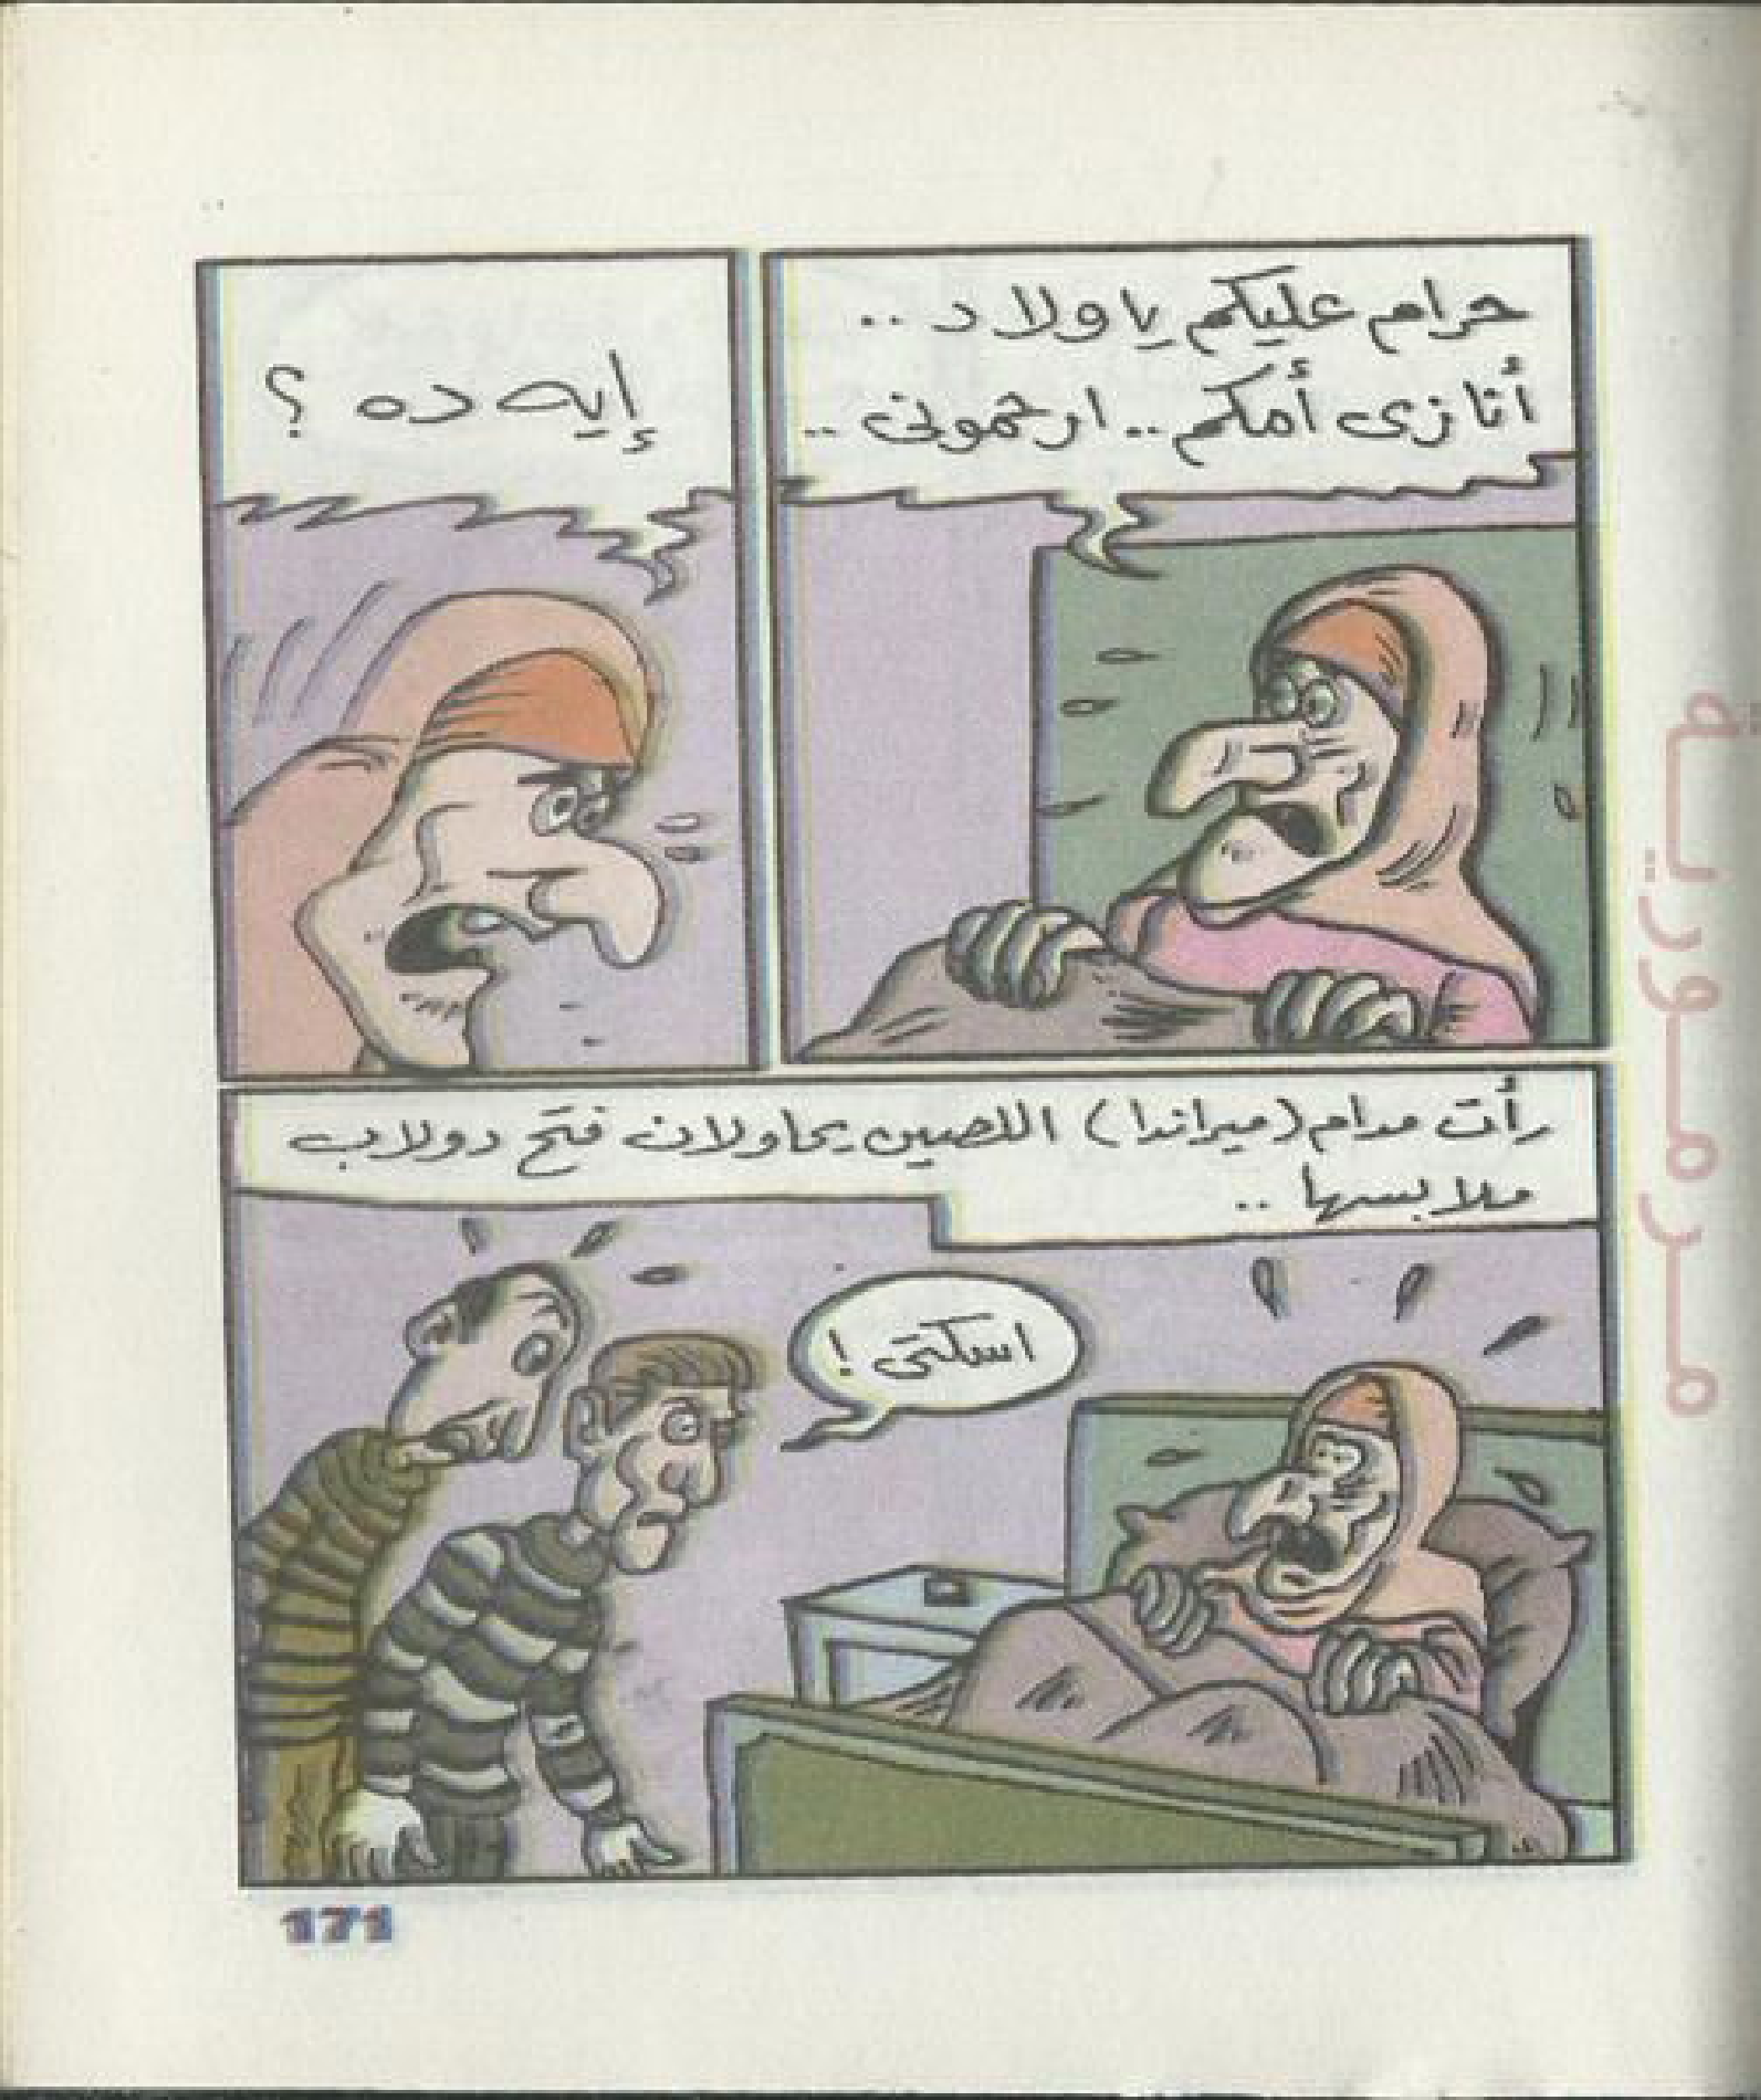 حرام عليكم يا ولاد ..
أنا زى أمكم .. ارحمونى ..
إيه ده ؟
رأت مدام (ميراندا) اللصين يحاولان فتح دولاب
ملابسها ..
اسكتى !
مرمورية
171